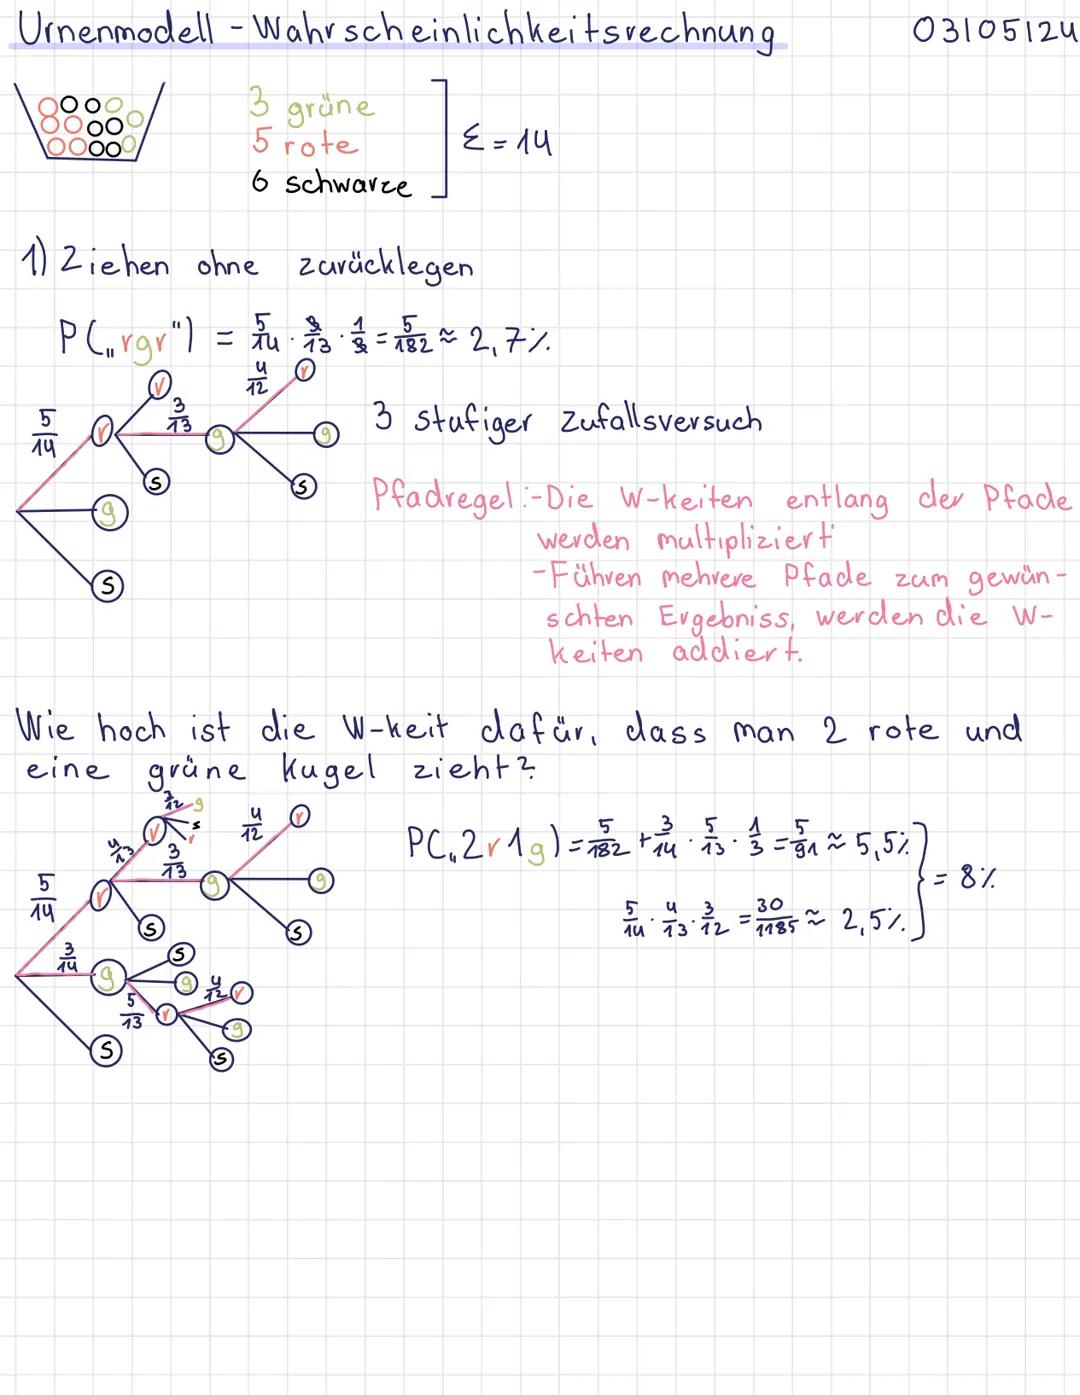 Urnenmodell - Wahrscheinlichkeitsrechnung 03105124
3 grüne
5 rote
6 schwarze
Σ = 14
1) Ziehen ohne zurücklegen
P(„rgr") = 5/14 · 3/13 · 1/3 = 5/182 ≈ 2,7%
5/14 r r 3/13 g 4/12 r
g
s
s
g
s
3 stufiger Zufallsversuch
Pfadregel: -Die W-keiten entlang der Pfade
werden multipliziert
-Führen mehrere Pfade zum gewün-
schten Ergebniss, werden die W-
keiten addiert.
Wie hoch ist die W-keit dafür, dass man 2 rote und
eine grüne Kugel zieht?
P(„2r1g) = 5/182 + 3/14 · 5/13 · 1/3 = 5/91 ≈ 5,5%
5/14 · 4/13 · 3/12 = 30/1185 ≈ 2,5%
= 8%
5/14 r 4/13 r 7/12 g
s
r
3/13 g 4/12 r
g
s
s
3/14 g s
g
5/13 r 4/12 r
g
s
s